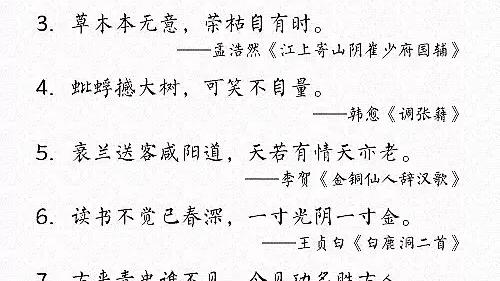 3. 草木本无意，荣枯自有时。
——孟浩然《江上寄山阴崔少府国辅》
4. 蚍蜉撼大树，可笑不自量。
——韩愈《调张籍》
5. 衰兰送客咸阳道，天若有情天亦老。
——李贺《金铜仙人辞汉歌》
6. 读书不觉已春深，一寸光阴一寸金。
——王贞白《白鹿洞二首》
7. 古来青史谁不见，今见功名胜古人。